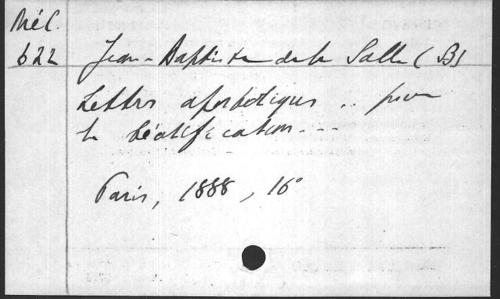 Mél.
622
Jean-Baptiste de la Salle (B)
Lettres apostoliques .. pour
la béatification ...
Paris, 1888, 16°